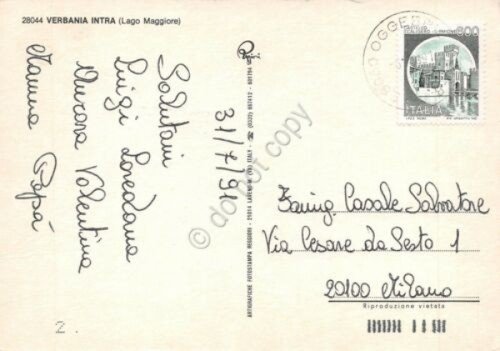 28044 VERBANIA INTRA (Lago Maggiore)
Salutoni
Luigi Loredana
Aurora Valentina
Mamma Papà
31/7/91
ARTIGRAFICHE FOTOSTAMPA REGGIORI - 21014 LAVENO M. (VA) ITALY
do not copy
OGGEB
600
ITALIA
Famig. Casale Salvatore
Via Cesare da Sesto 1
20100 Milano
Riproduzione vietata
2.